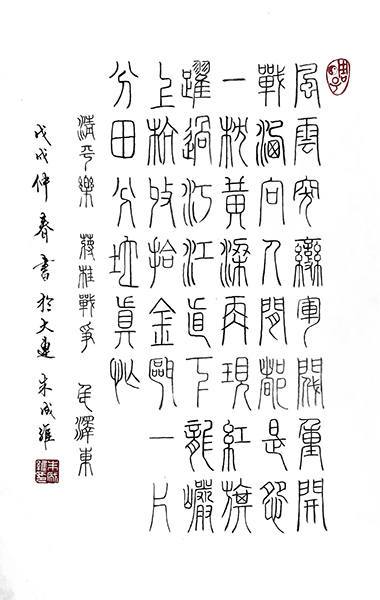 風雲突變軍閥重開
戰灑向人間都是怨
一枕黃粱再現紅旗
躍過汀江直下龍巖
上杭收拾金甌一片
分田分地真忙
清平樂 蔣桂戰爭 毛澤東
戊戌仲春書於大連 朱成維